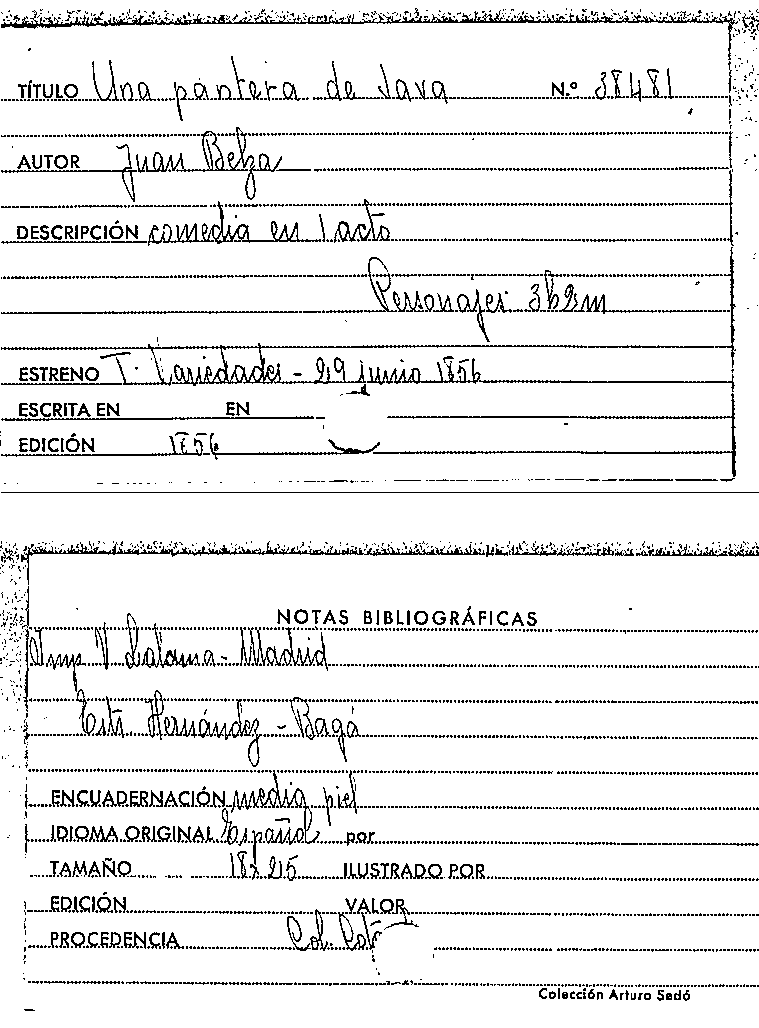 TÍTULO Una pantera de Java N.º 38481
AUTOR Juan Belza
DESCRIPCIÓN comedia en 1 acto
Personajes 3h2m
ESTRENO T. Variedades - 29 junio 1856
ESCRITA EN EN
EDICIÓN 1856
NOTAS BIBLIOGRÁFICAS
Imp V Lalama - Madrid
Estr Hernández - Bagá
ENCUADERNACIÓN media piel
IDIOMA ORIGINAL Español por
TAMAÑO 18x 25 ILUSTRADO POR
EDICIÓN VALOR
PROCEDENCIA Col.
Colección Arturo Sedó